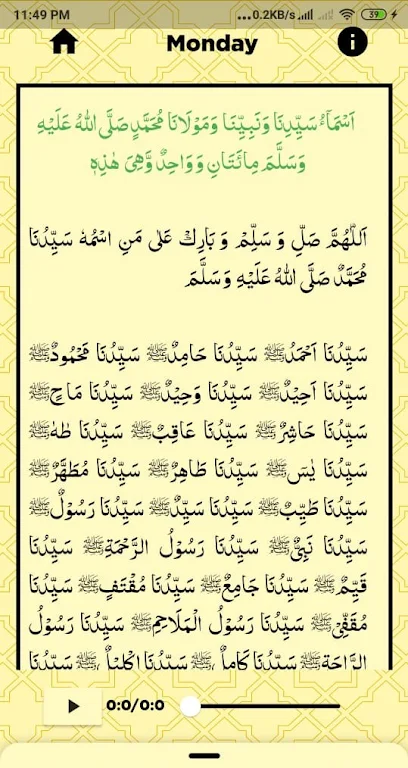 11:49 PM ...0.2KB/s 39
Monday
اَسْمَآءُ سَيِّدِنَا وَنَبِيِّنَا وَمَوْلَانَا مُحَمَّدٍ صَلَّى اللهُ عَلَيْهِ
وَسَلَّمَ مِائَتَانِ وَوَاحِدٌ وَّهِىَ هٰذِهٖ
اَللّٰهُمَّ صَلِّ وَ سَلِّمْ وَ بَارِكْ عَلٰى مَنِ اسْمُهٗ سَيِّدُنَا
مُحَمَّدٌ صَلَّى اللهُ عَلَيْهِ وَسَلَّمَ
سَيِّدُنَا اَحْمَدُﷺ سَيِّدُنَا حَامِدٌﷺ سَيِّدُنَا مَحْمُودٌﷺ
سَيِّدُنَا اَحِيْدٌﷺ سَيِّدُنَا وَحِيْدٌﷺ سَيِّدُنَا مَاحٍﷺ
سَيِّدُنَا حَاشِرٌﷺ سَيِّدُنَا عَاقِبٌﷺ سَيِّدُنَا طٰهٰﷺ
سَيِّدُنَا يٰسٓﷺ سَيِّدُنَا طَاهِرٌﷺ سَيِّدُنَا مُطَهَّرٌﷺ
سَيِّدُنَا طَيِّبٌﷺ سَيِّدُنَا سَيِّدٌﷺ سَيِّدُنَا رَسُوْلٌﷺ
سَيِّدُنَا نَبِىٌّﷺ سَيِّدُنَا رَسُوْلُ الرَّحْمَةِﷺ سَيِّدُنَا
قَيِّمٌﷺ سَيِّدُنَا جَامِعٌﷺ سَيِّدُنَا مُقْتَفٍﷺ سَيِّدُنَا
مُقَفِّىْﷺ سَيِّدُنَا رَسُوْلُ الْمَلَاحِمِﷺ سَيِّدُنَا رَسُوْلُ
الرَّاحَةِﷺ سَيِّدُنَا كَامِلٌﷺ سَيِّدُنَا اِكْلِيْلٌﷺ سَيِّدُنَا
0:0/0:0